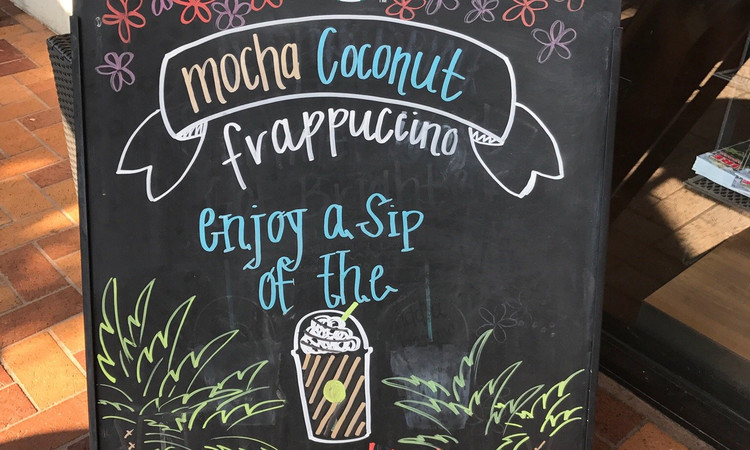 mocha Coconut
frappuccino
enjoy a sip
of the